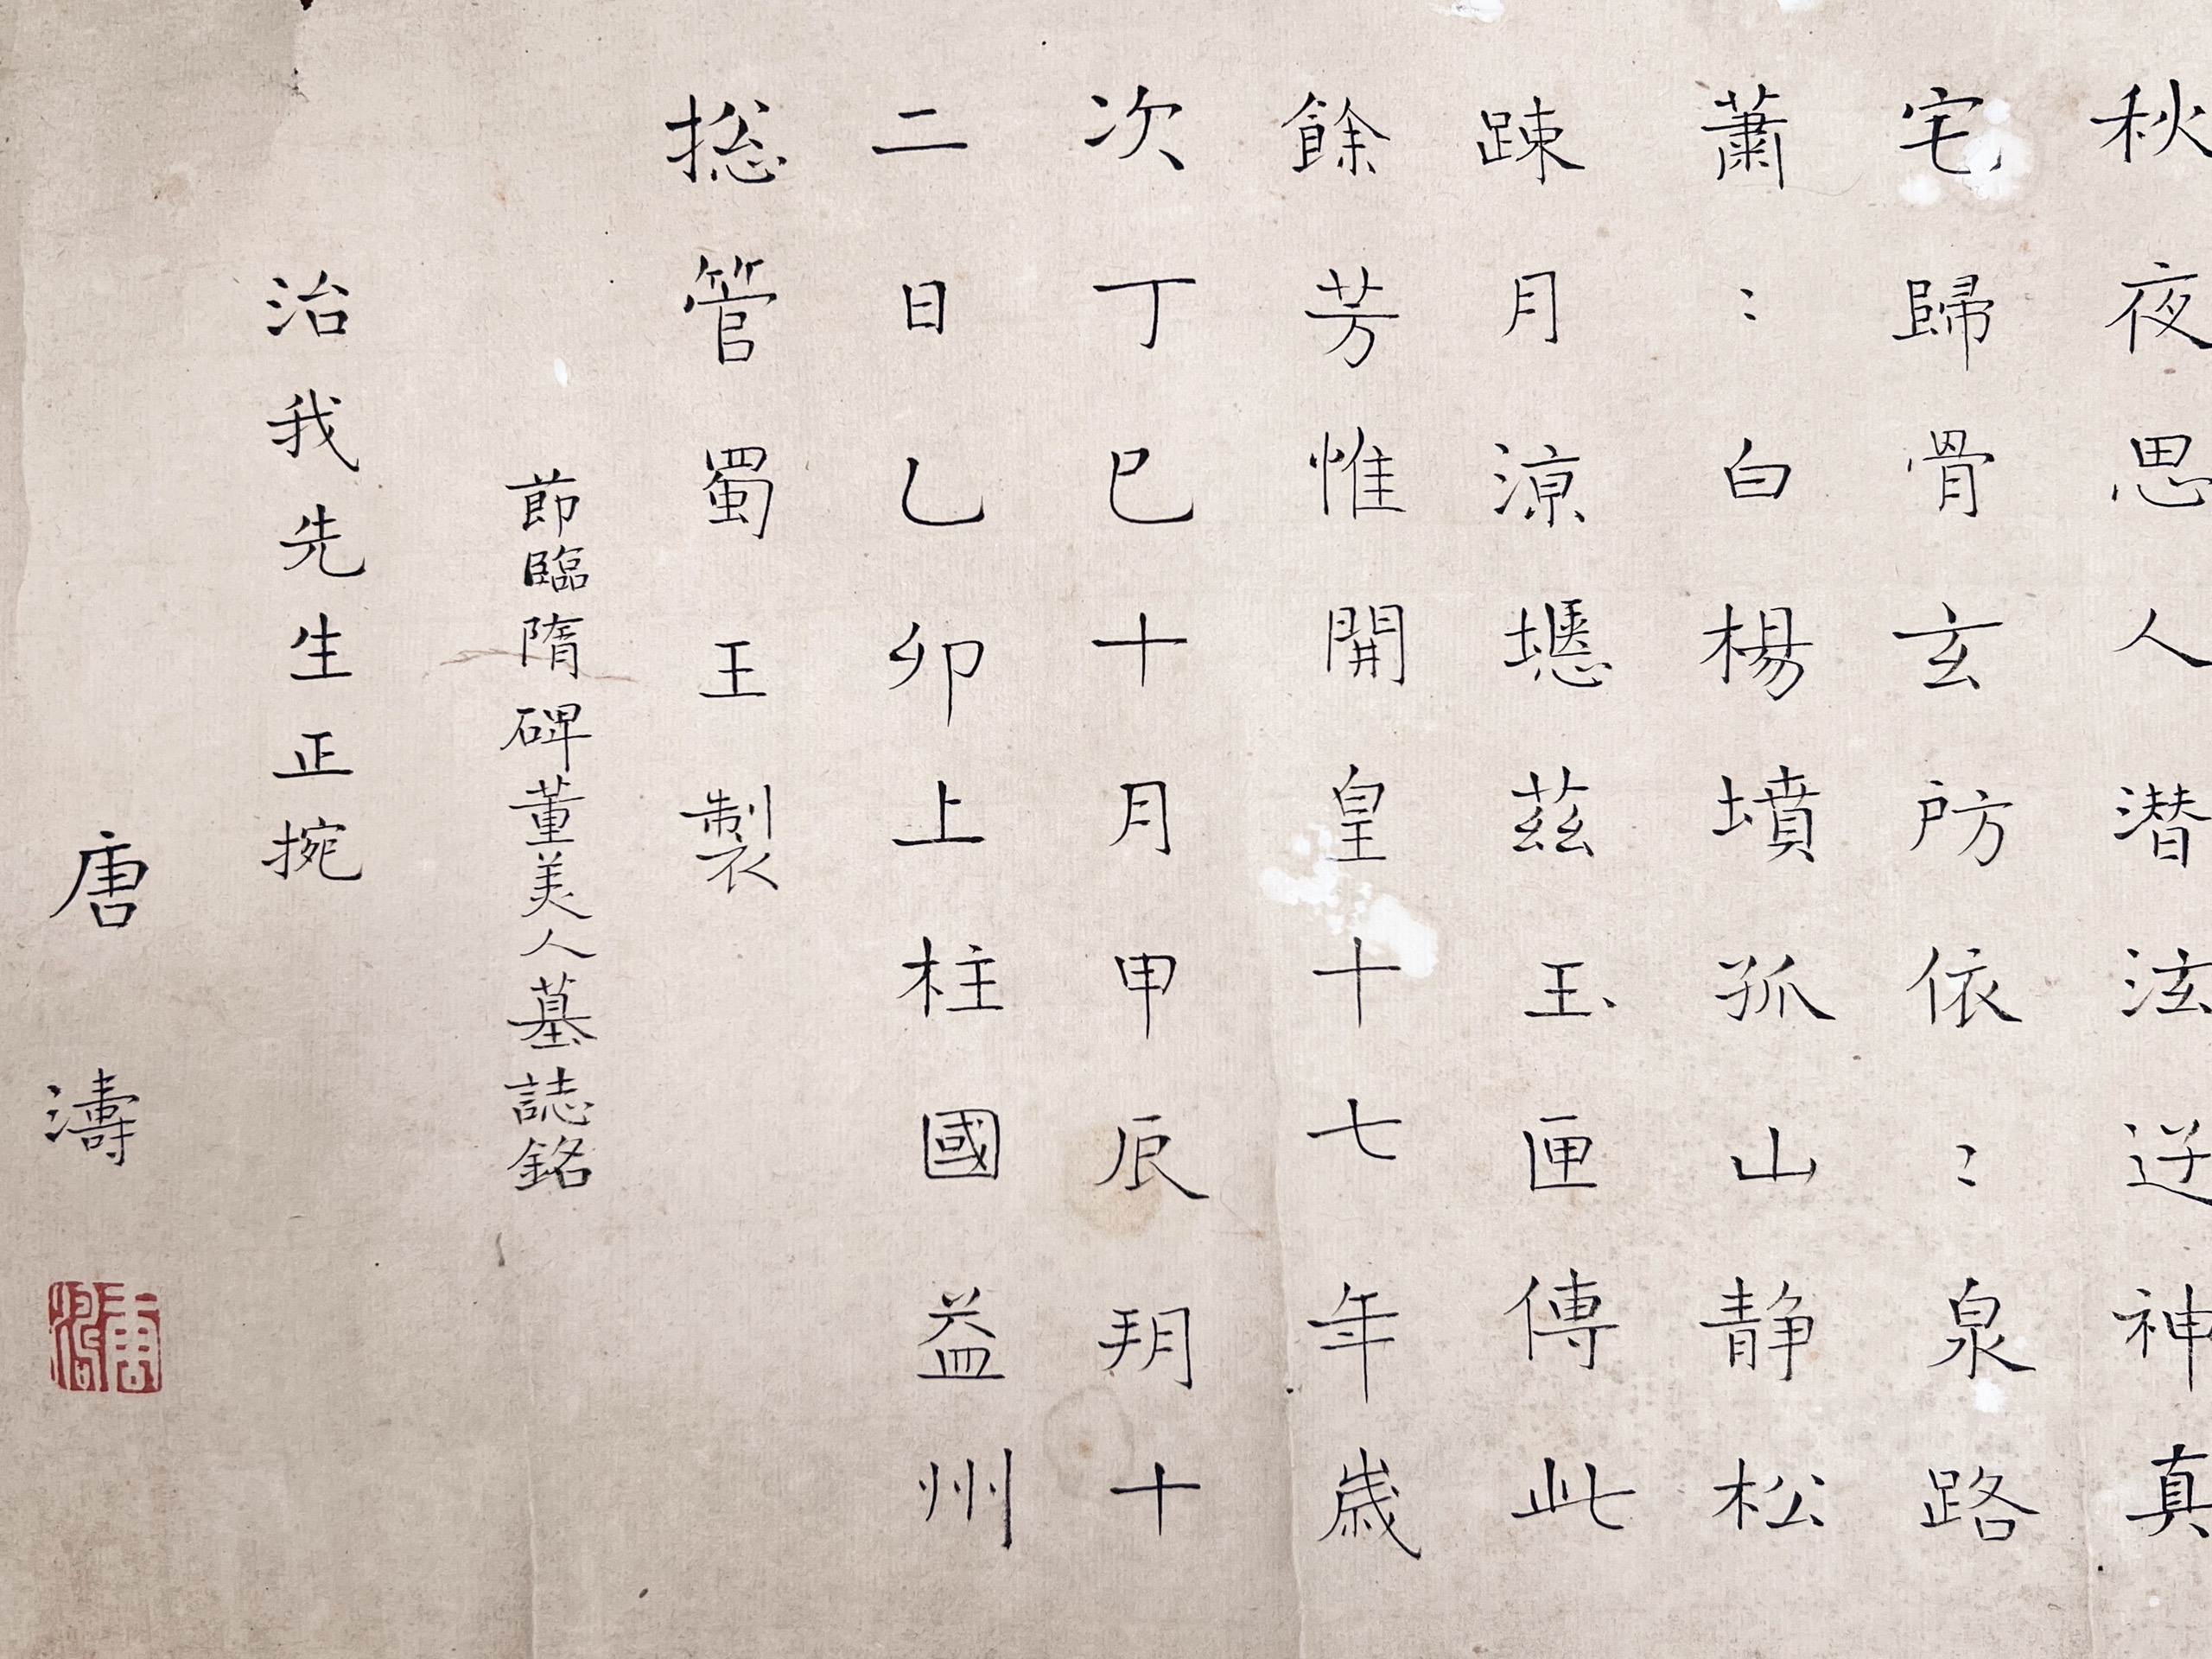 秋夜思人潜泫逆神真
宅歸骨玄房依〻泉路
蕭〻白楊墳孤山静松
踈月涼壥茲玉匣傳此
餘芳惟開皇十七年歲
次丁巳十月甲辰朔十
二日乙卯上柱國益州
捴管蜀王製
節臨隋碑董美人墓誌銘
治我先生正捥
唐濤